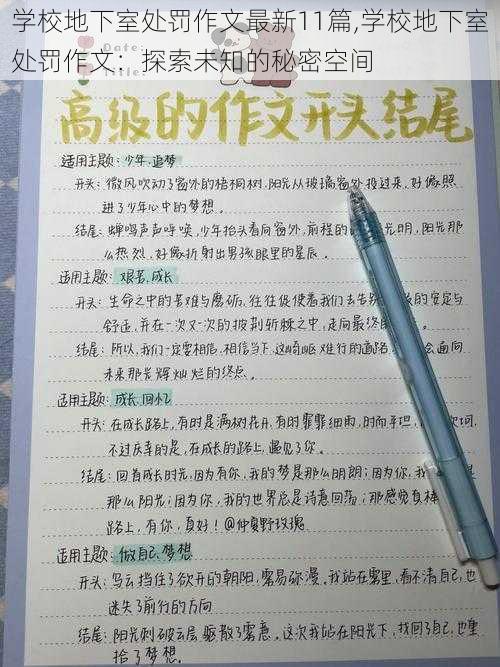 学校地下室处罚作文最新11篇,学校地下室
处罚作文：探索未知的秘密空间
Date:
高级的作文开头结尾
适用主题：少年.追梦
开头：微风吹动了窗外的梧桐树，阳光从玻璃窗外投过来，好像照
进了少年心中的梦想。
结尾：蝉鸣声声呼唤，少年抬头看向窗外，前程的 光明，阳光那
么热烈，好像折射出男孩眼里的星辰。
适用主题：艰苦.成长
开头：生命之中的苦难与磨砺，往往促使着我们去告别 的安定与
舒适，并在一次又一次的披荆斩棘之中，走向最终的
结尾：所以，我们一定要相信，相信当下，这崎岖难行的道路 会通向
未来那光辉灿烂的终点。
适用主题：成长.回忆
开头：在成长路上，有时是满树花开，有时霏霏细雨，时而平坦， 坎坷，
不过庆幸的是，在成长的路上，遇见了你。
结尾：回首成长时光，因为有你，我的梦是那么明朗；因为你，我 是
那么阳光；因为你，我的世界总是诗意回荡；那感觉真棒
路上，有你，真好！@仲夏野玫瑰
适用主题：做自己.梦想
开头：乌云挡住了欲开的朝阳，雾易弥漫。我站在雾里，看不清自己，也
迷失了前行的方向
结尾：阳光刺破云层，驱散了雾意。这次我站在阳光下，找回了自己，也重
拾了梦想。